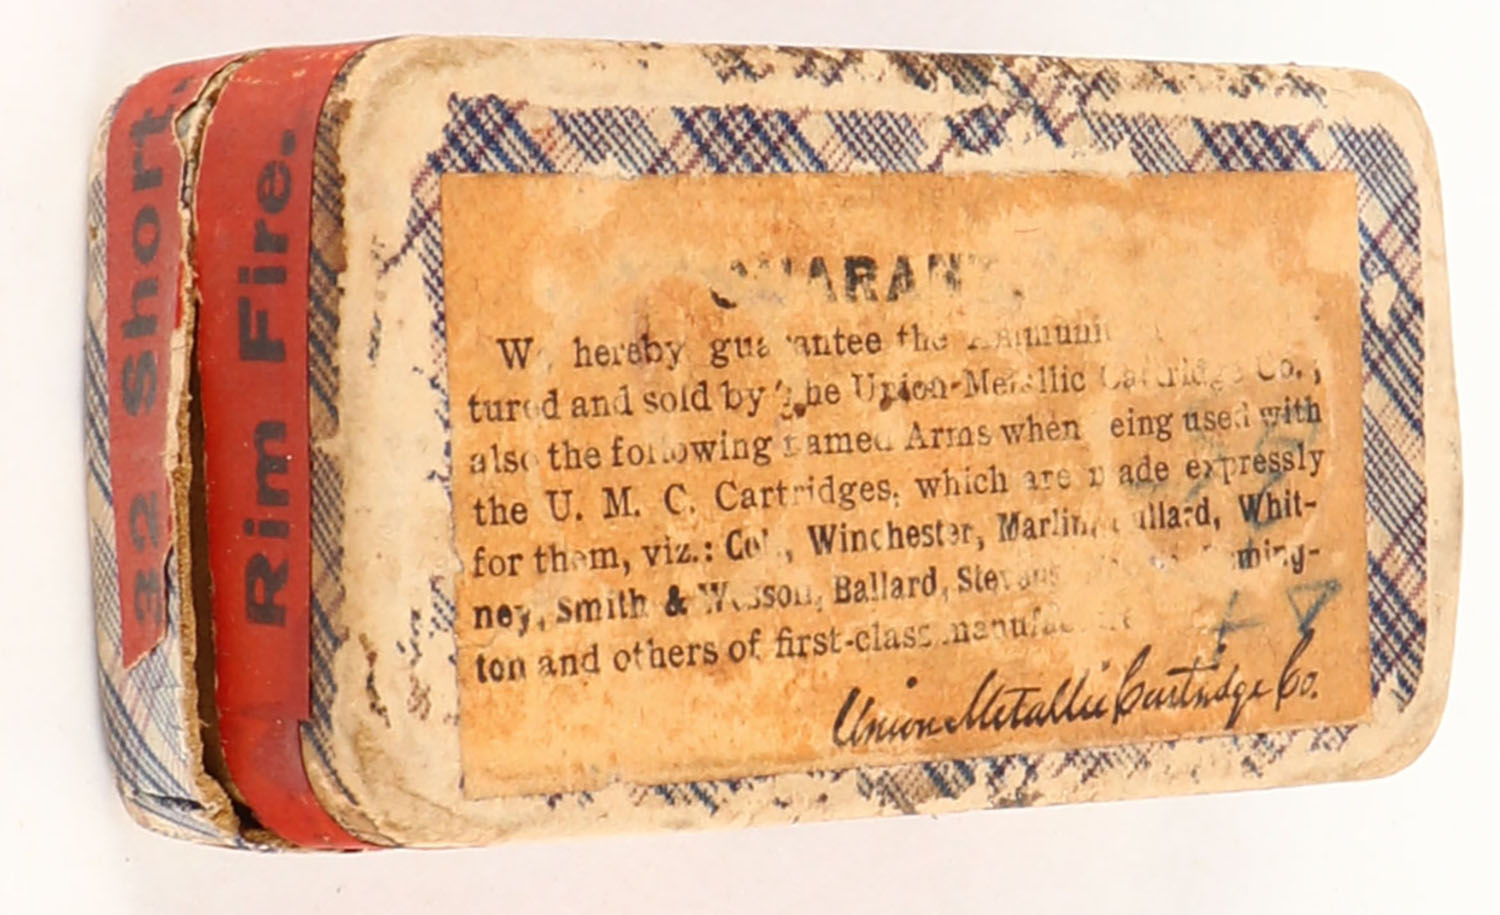 32 Short.
Rim Fire.
hereby guarantee the
tured and sold by The Union-Metallic Cartridge Co.;
also the following named Arms when being used with
the U. M. C. Cartridges, which are made expressly
for them, viz.: Colt, Winchester, Marlin, Bullard, Whit-
ney, Smith & Wesson, Ballard, Stevens
ton and others of first-class
Union Metallic Cartridge Co.